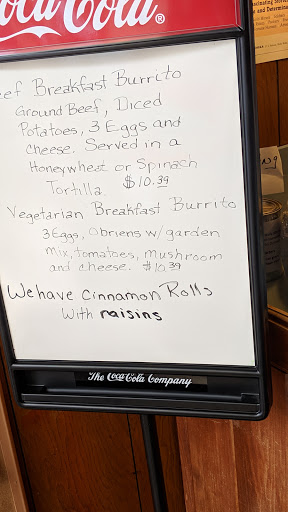 Coca-Cola®
eef Breakfast Burrito
Ground Beef, Diced
Potatoes, 3 Eggs and
cheese. Served in a
Honeywheat or Spinach
Tortilla. $10.39
Vegetarian Breakfast Burrito
3 Eggs, Obriens w/ garden
mix, tomatoes, mushroom
and cheese. $10.39
We have Cinnamon Rolls
With raisins
The Coca-Cola Company